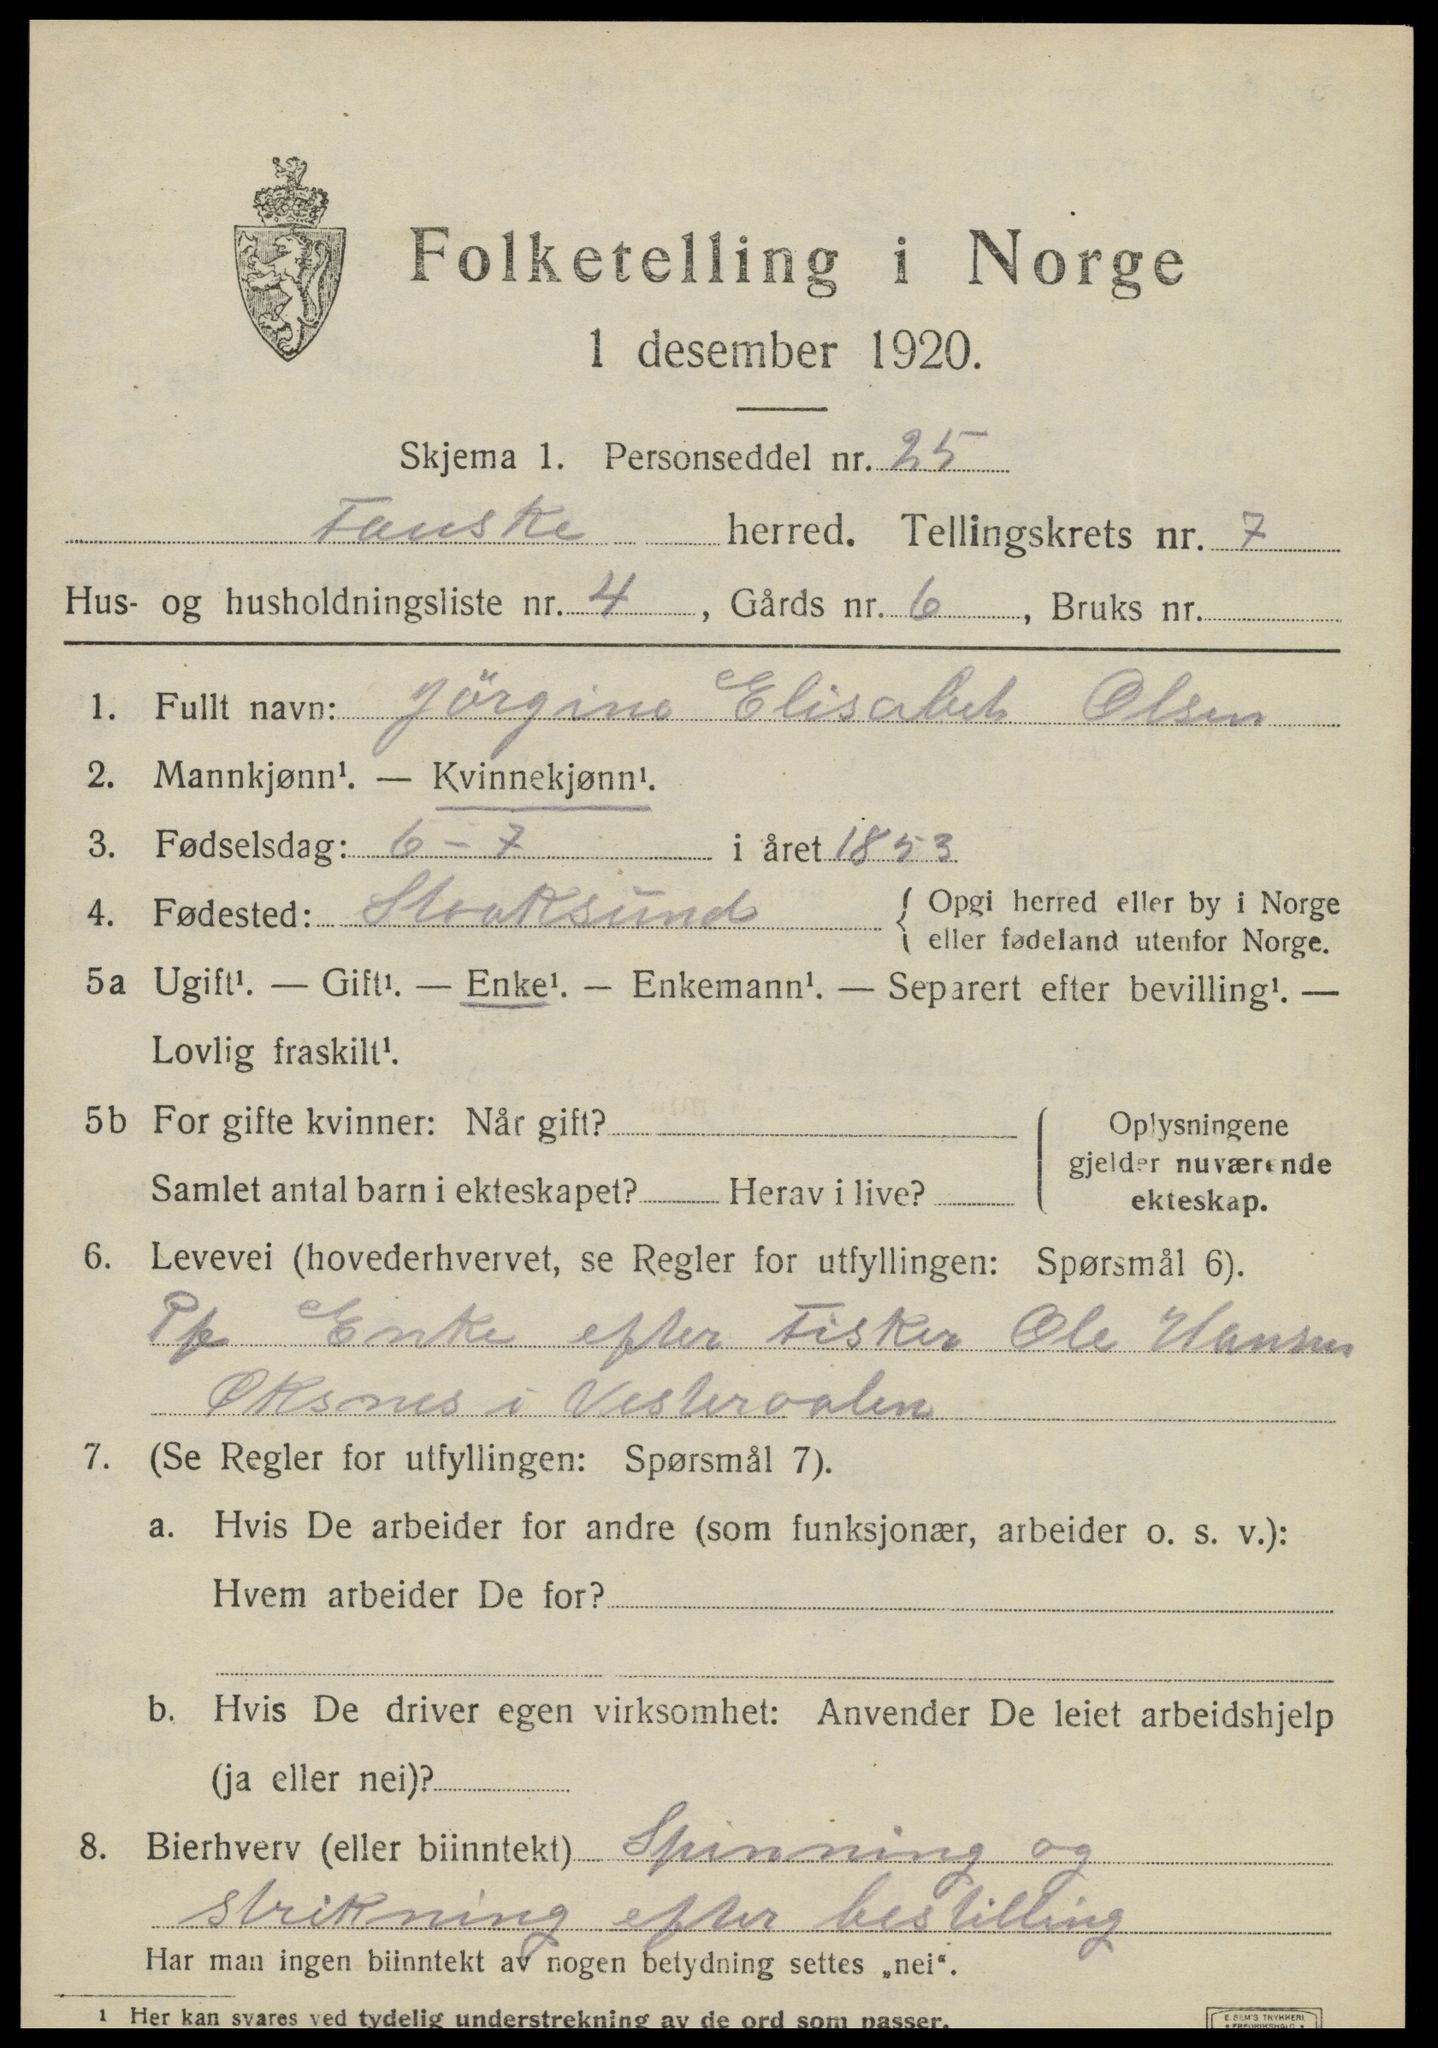 Folketelling i Norge
1 desember 1920.
Skjema 1. Personseddel nr. 25
Fauske herred. Tellingskrets nr. 7
Hus- og husholdningsliste nr. 4, Gårds nr. 6, Bruks nr.
1. Fullt navn: Jörgine Elisabet Olsen
2. Mannkjønn¹. — Kvinnekjønn¹.
3. Fødselsdag: 6 - 7 i året 1853
4. Fødested: Stoksund { Opgi herred eller by i Norge
eller fødeland utenfor Norge.
5a Ugift¹. — Gift¹. — Enke¹. — Enkemann¹. — Separert efter bevilling¹. —
Lovlig fraskilt¹.
5b For gifte kvinner: Når gift? Oplysningene
gjelder nuværende
Samlet antal barn i ekteskapet? Herav i live? ekteskap.
6. Levevei (hovederhvervet, se Regler for utfyllingen: Spørsmål 6).
Enke efter Fisker Ole Hansen
Øksnes i Vesteraalen
7. (Se Regler for utfyllingen: Spørsmål 7).
a. Hvis De arbeider for andre (som funksjonær, arbeider o. s. v.):
Hvem arbeider De for?
b. Hvis De driver egen virksomhet: Anvender De leiet arbeidshjelp
(ja eller nei)?
8. Bierhverv (eller biinntekt) Spinning og
strikning efter bestilling
Har man ingen biinntekt av nogen betydning settes „nei“.
1 Her kan svares ved tydelig understrekning av de ord som passer.
E. SEM'S TRYKKERI
FREDRIKSHALD